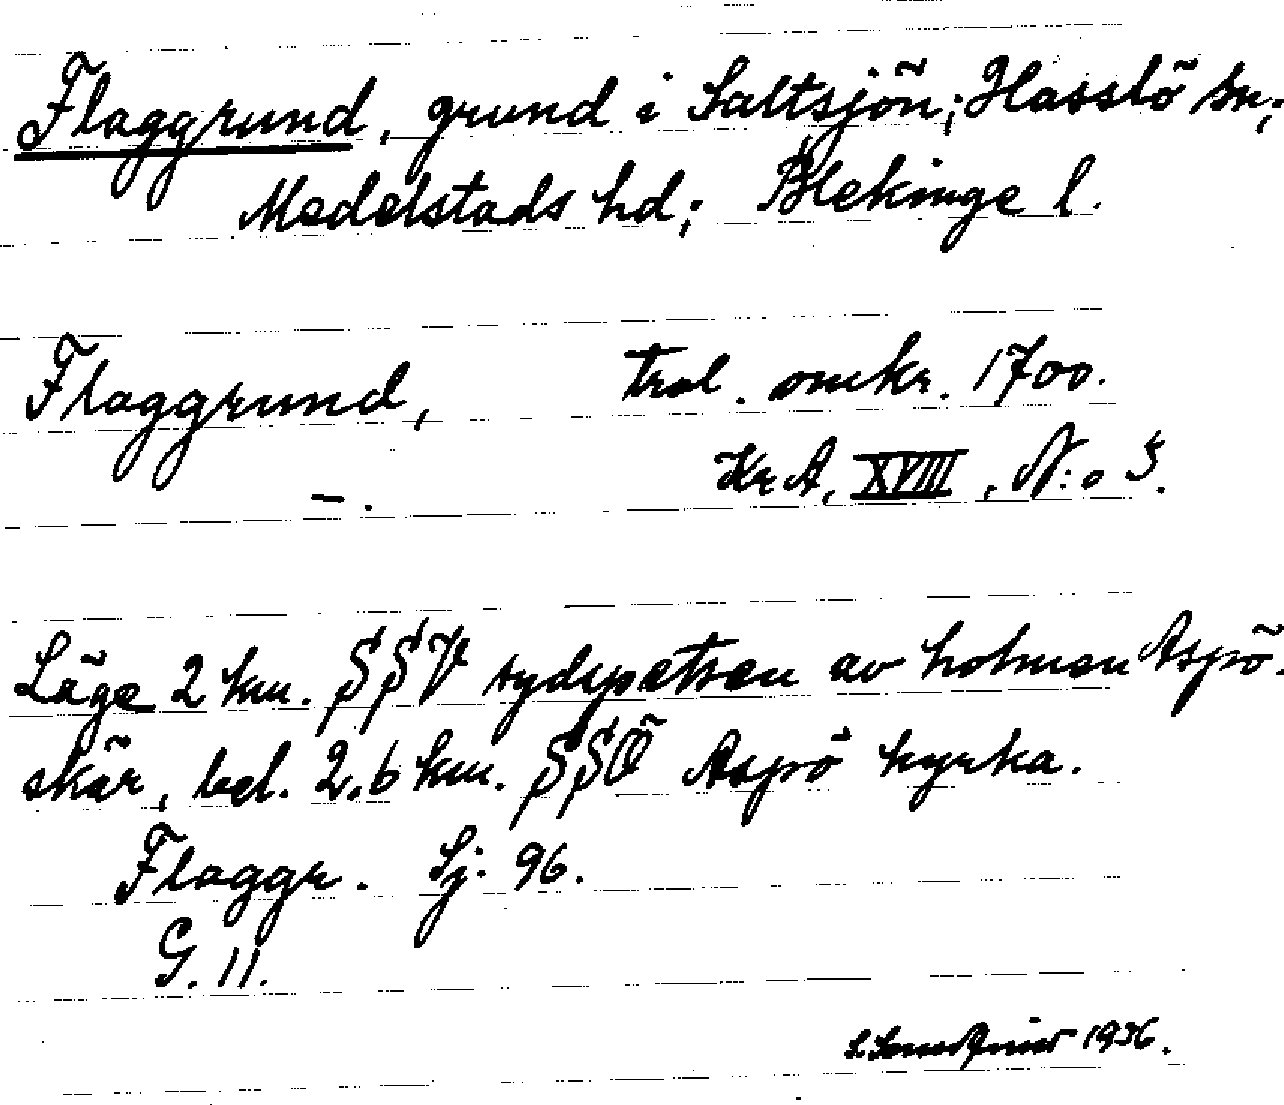 Flaggrund, grund i Saltsjön; Hasslö sn;
Medelstads hd; Blekinge l.
Flaggrund, trol. omkr. 1700.
Kr A, XVIII, N:o 5.
—.
Läge 2 km. SSV sydspetsen av holmen Aspö-
skär, bel. 2.6 km. SSÖ Aspö kyrka.
Flaggr. Sj. 96.
G. 11.
1936.